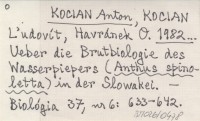 o
KOCIAN Anton, KOCIAN
Ľudovít, Havránek O. 1982...
Ueber die Brutbiologie des
Wasserpiepers (Anthus spino-
letta) in der Slowakei. —
Biológia 37, nr 6: 633-642.